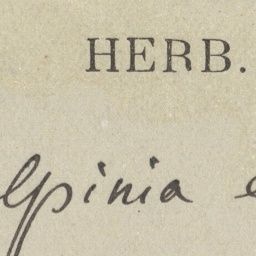 HERB.
lpinia e